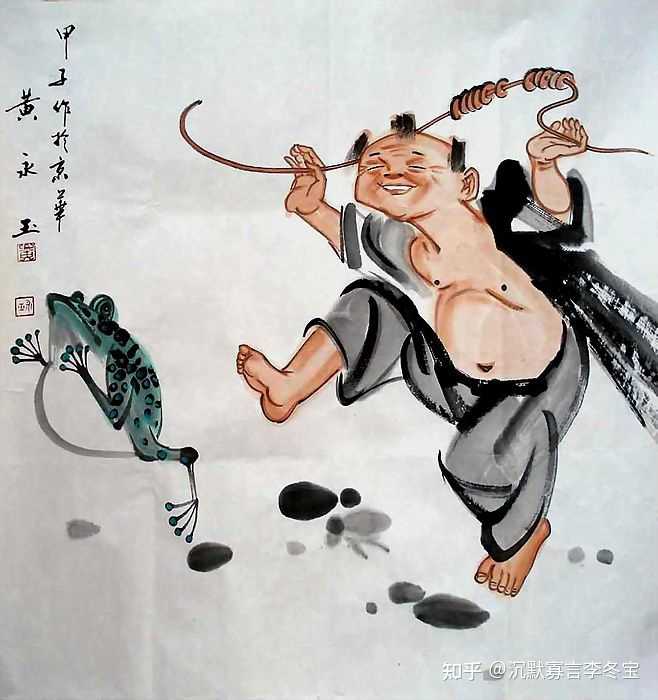 甲子作於京華
黄永玉
知乎 @沉默寡言李冬宝